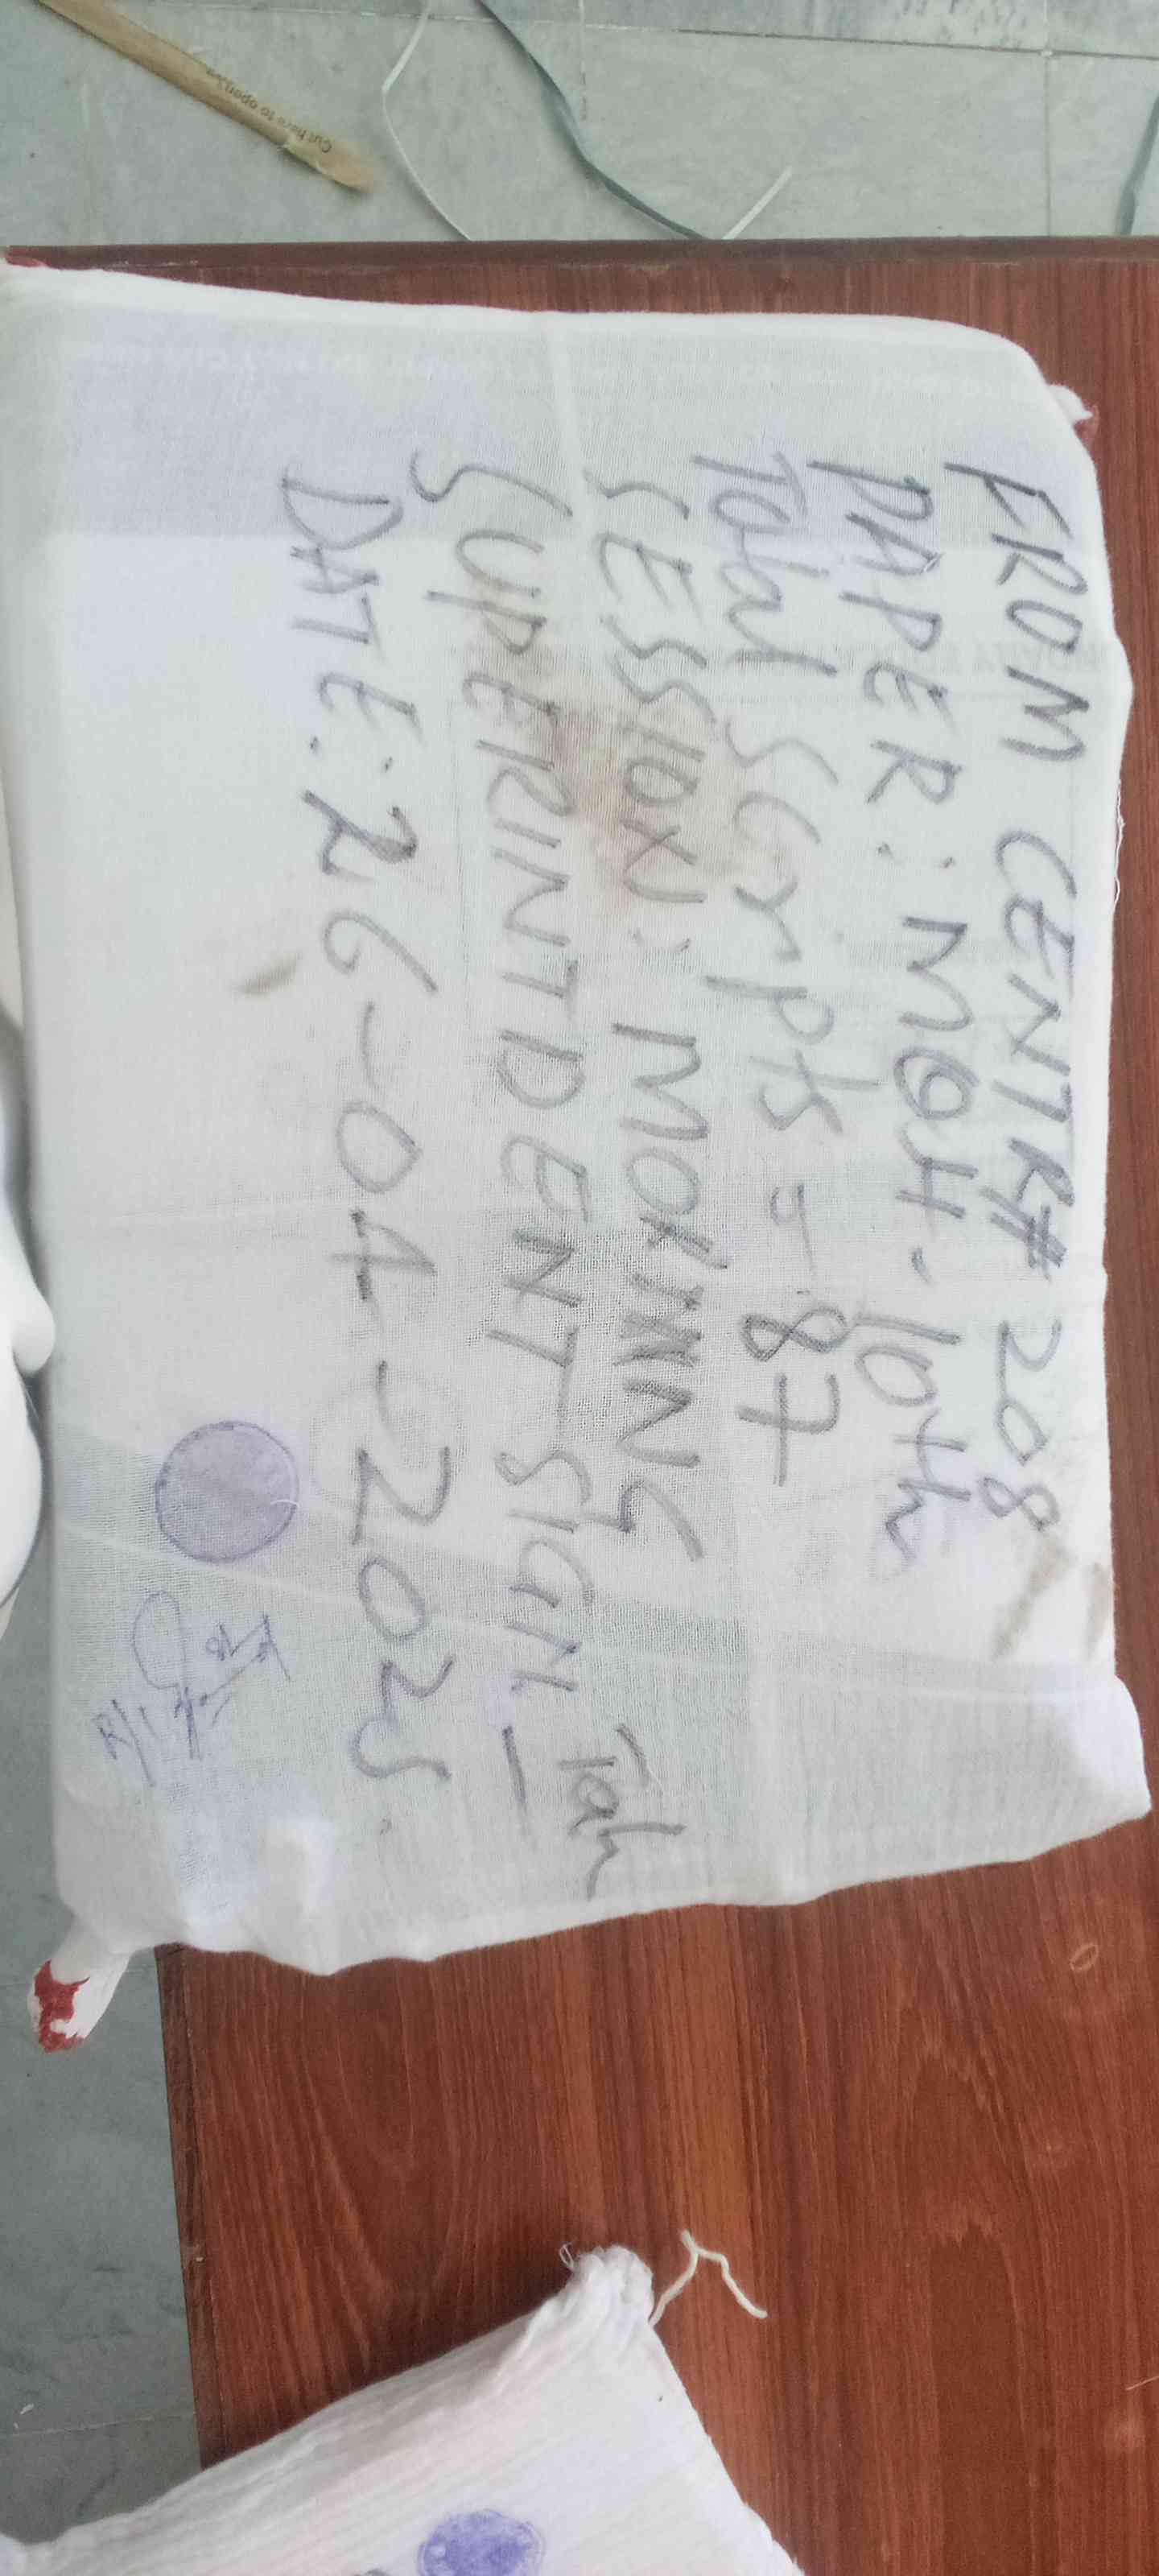 FROM CENTR# 208
PAPER: MQH. 10th
Total Scripts = 87
SESSION: MORNING
SUPERINTDENT SIGN. - Tah
DATE. 26-04-2025.
Cut here to open